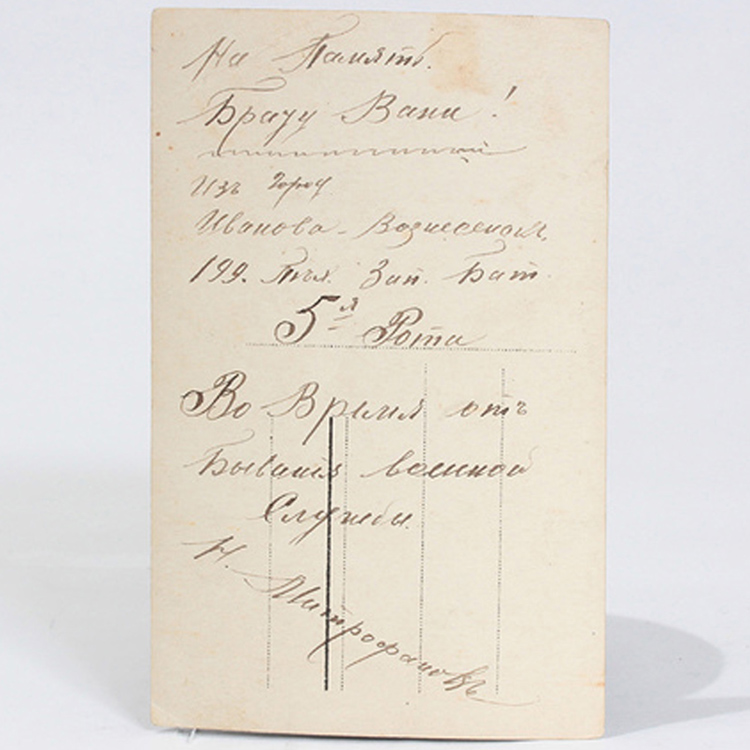 На Память.
Брату Вани!
Изъ город
Иванова-Вознесенск.
199. Пѣх. Зап. Бат.
5я Рота
Во Время отъ
Бывания военной
Службы.
Н. Митрофановъ